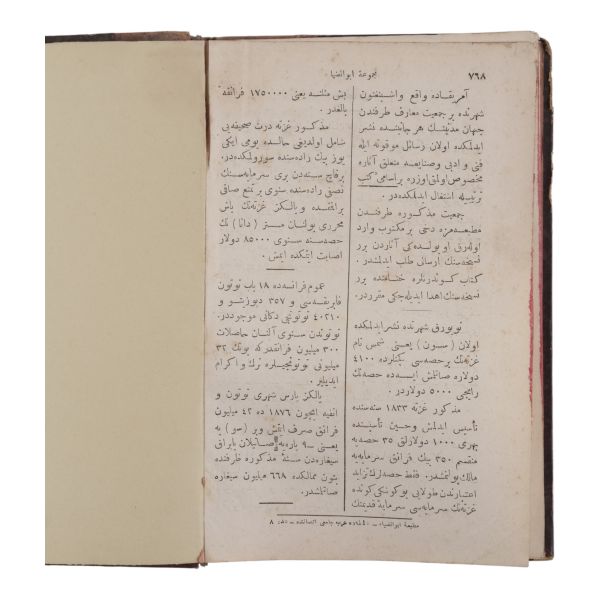 ٧٦٨
مجموعهٔ ابوالضیا
آمریقاده واقع واشینغتون
شهرنده بر جمعیت معارف طرفندن
جهان مدنیتك هر جانبنده نشر
ایدلمکده اولان رسائل موقوته ایله
فنی و ادبی و صنایعه متعلق آثاره
مخصوص اولمق اوزره براسامی كتب
ترتیبیله اشتغال ایدلمکده‌در .
جمعیت مذکوره طرفندن
مطبعه‌مزه دخی بر مکتوب وارد
اوله‌رق او یولده‌کی آثاردن برر
نسخه‌سنك ارسالی طلب ایدلمشدر .
کتاب کوندرنلره ختامنده برر
نسخه‌سنك اهدا ایدیله‌جکی مقرردر .
نویورق شهرنده نشر ایدلمکده
اولان ( سون ) یعنی شمس نام
غزته‌نك بر حصه‌سی کچنلرده ٤١٠٠
دولاره صاتلمش ایسه‌ده حصه‌نك
رایجی ٥٠٠٠ دولاردر .
مذکور غزته ١٨٣٣ سنه‌سنده
تأسیس ایدلمش وحین تأسیسنده
بهری ١٠٠٠ دولارلق ٣٥ حصه‌یه
منقسم ٣٥٠ بیك فرانق سرمایه‌یه
مالك بولنمشدر. فقط حصه‌لرك تزاید
اعتبارندن طولایی بوکونکی کونده
غزته‌نك سرمایه‌سی سرمایهٔ قدیمنك
بش مثلنه یعنی ١٧٥٠٠٠٠ فرانقه
بالغدر .
مذکور غزته درت صحیفه‌یی
شامل اولدیغی حالده یومی ایکی
یوز بیك راده‌سنده سورولمکده‌در.
برقاچ سنه‌دن بری سرمایه‌سنك
نصفی راده‌سنده سنوی بر تمتع صافی
براقمقده و یالکز غزته‌نك باش
محرری بولنان مستر ( دانا ) نك
حصه‌سنه سنوی ٨٥٠٠٠ دولار
اصابت ایتمکده ایمش .
عموم فرانسه‌ده ١٨ باب توتون
فابریقه‌سی و ٣٥٧ دپوزیتو و
٤٠٢١٠ توتونجی دکانی موجوددر .
توتوندن سنوی آلنان حاصلات
٣٠٠ ملیون فرانقدر که بونك ٣٢
ملیونی توتونجیلره ترك و اکرام
ایدیلیر .
یالکز پارس شهری توتون و
انفیه ایچون ١٨٧٦ ده ٤٢ ملیون
فرانق صرف ایتمش وبر (سو) یه
یعنی ٩٠ پاره‌یه صاتیلان یاپراق
سیغاره‌دن سنهٔ مذکوره ظرفنده
بتون ممالکده ٦٦٨ ملیون سیغاره
صاتلمشدر.
مطبعهٔ ابوالضیاء